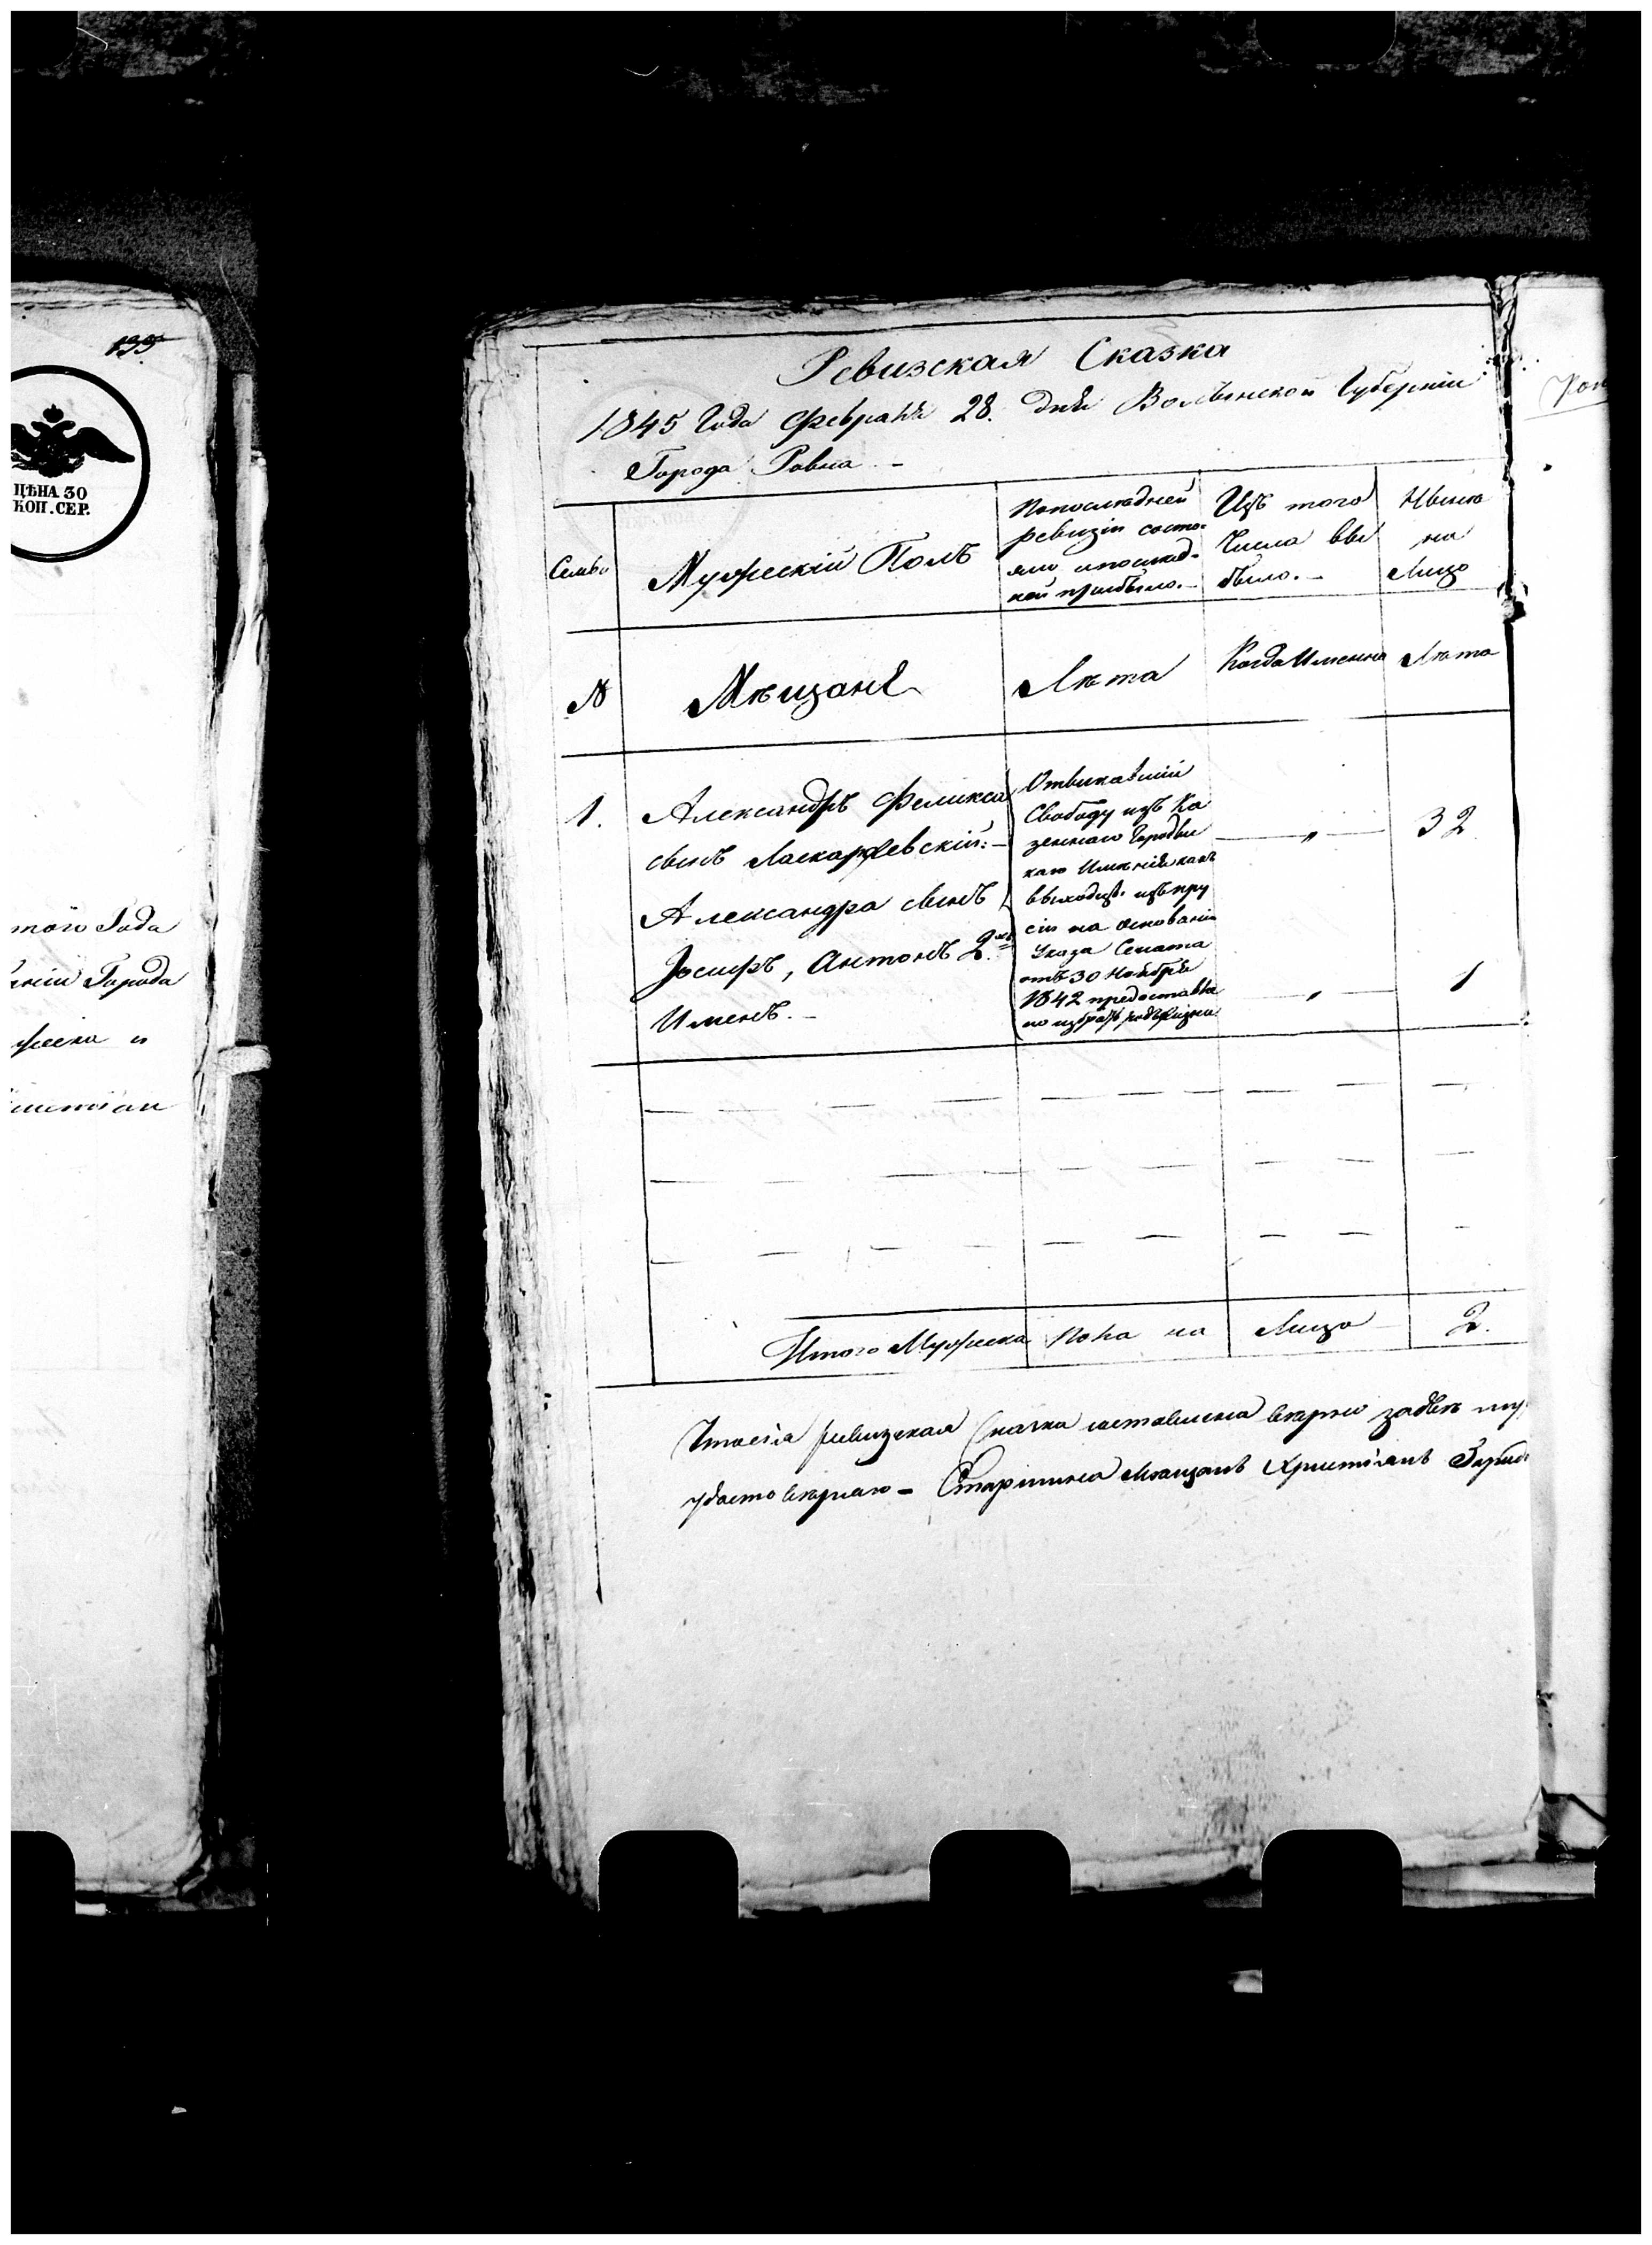 199
ЦѢНА 30
КОП. СЕР.
Года
Города
Ревизская Сказка
1845 Года Февраля 28. дня Волынской Губерніи
Города Ровна -
Семьи
Мужескій Полъ
Попоследней
ревизіи состо-
яло ипослѣд-
ней прибыло. -
Изъ того
Числа вы
было. -
Нынѣ
на
Лицо
№
Мѣщане
Лѣта
Когда Именно
Лѣта
1.
Александръ Феликса
сынъ
Александра сынъ
Іосифъ, Антонъ 2хъ
Именъ. -
Отыскавшій
Свободу изъ Ка
зеннаго
каго Имѣнія какъ
выходецъ изъ Пру
сіи на основаніи
Указа Сената
отъ 30 Ноября
1842 предоставле
но избрать
„
32
„
1
Итого Мужеска
Пола на
Лицо
2.
Что сія ревизская Сказка составлена верно
удостоверяю - Старшина Мещанъ Христіанъ